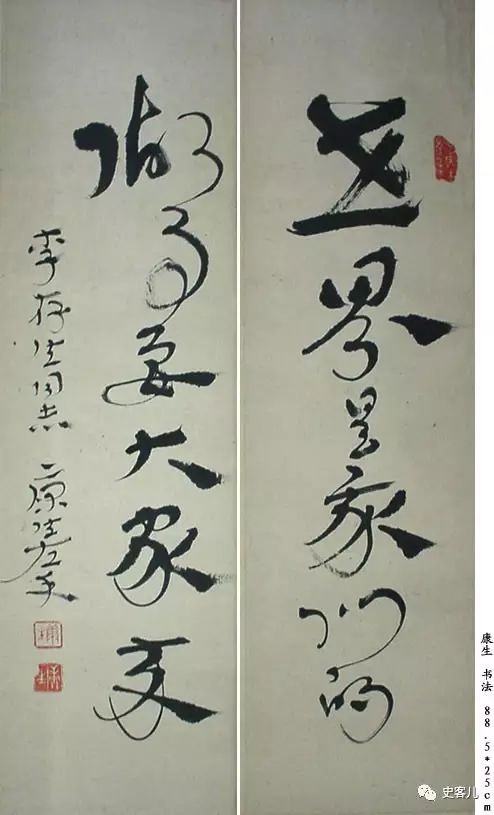 世界是我们的
做事要大家来
李 生同志 康生左手
康生 书法 88.5*25cm
史客儿